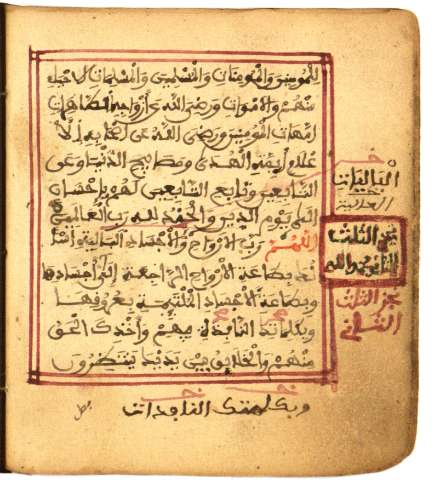 للمومنين والمومنات والمسلمين والمسلمات الاحياء
منهم والاموات ورضي الله عن ازواجه الطاهرات
امهات المومنين ورضي الله عن اصحابه الا
علام ايمة الهدى ومصابيح الدنيا وعن
التابعين وتابع التابعين لهم باحسان
الى يوم الدين والحمد لله رب العالمين
اللهم رب الارواح والاجساد البالية اسا
لك بطاعة الارواح الراجعة الى اجسادها
وبطاعة الاجساد الملتئمة بعروقها
وبكلماتك النافذة فيهم واخذك الحق
منهم والخلايق بين يديك ينتظرون
الباليات
نجز الثلث
الثاني بحمد الله
نجز الثلث
الثاني
وبكلمتك النافذات